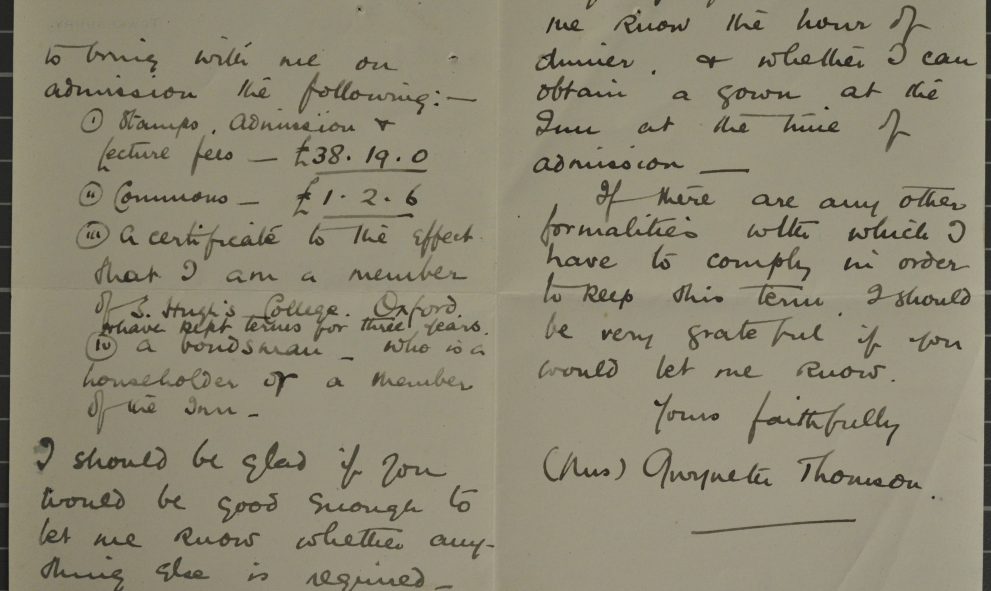 to bring with me on
admission the following:—
(i) Stamps, Admission &
Lecture fees — £38. 19. 0
(ii) Commons — £1. 2. 6
(iii) A certificate to the effect
that I am a member
of S. Hugh's College. Oxford.
& have kept terms for three years.
(iv) a bondsman — who is a
householder or a member
of the Inn —
I should be glad if you
would be good enough to
let me know whether any-
thing else is required —
me know the hour of
dinner, & whether I can
obtain a gown at the
Inn at the time of
admission —
If there are any other
formalities with which I
have to comply in order
to keep this term I should
be very grateful if you
would let me know.
Yours faithfully
(Mrs) Gwyneth Thomson.